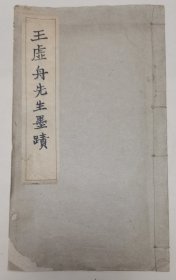 王虛舟先生墨蹟